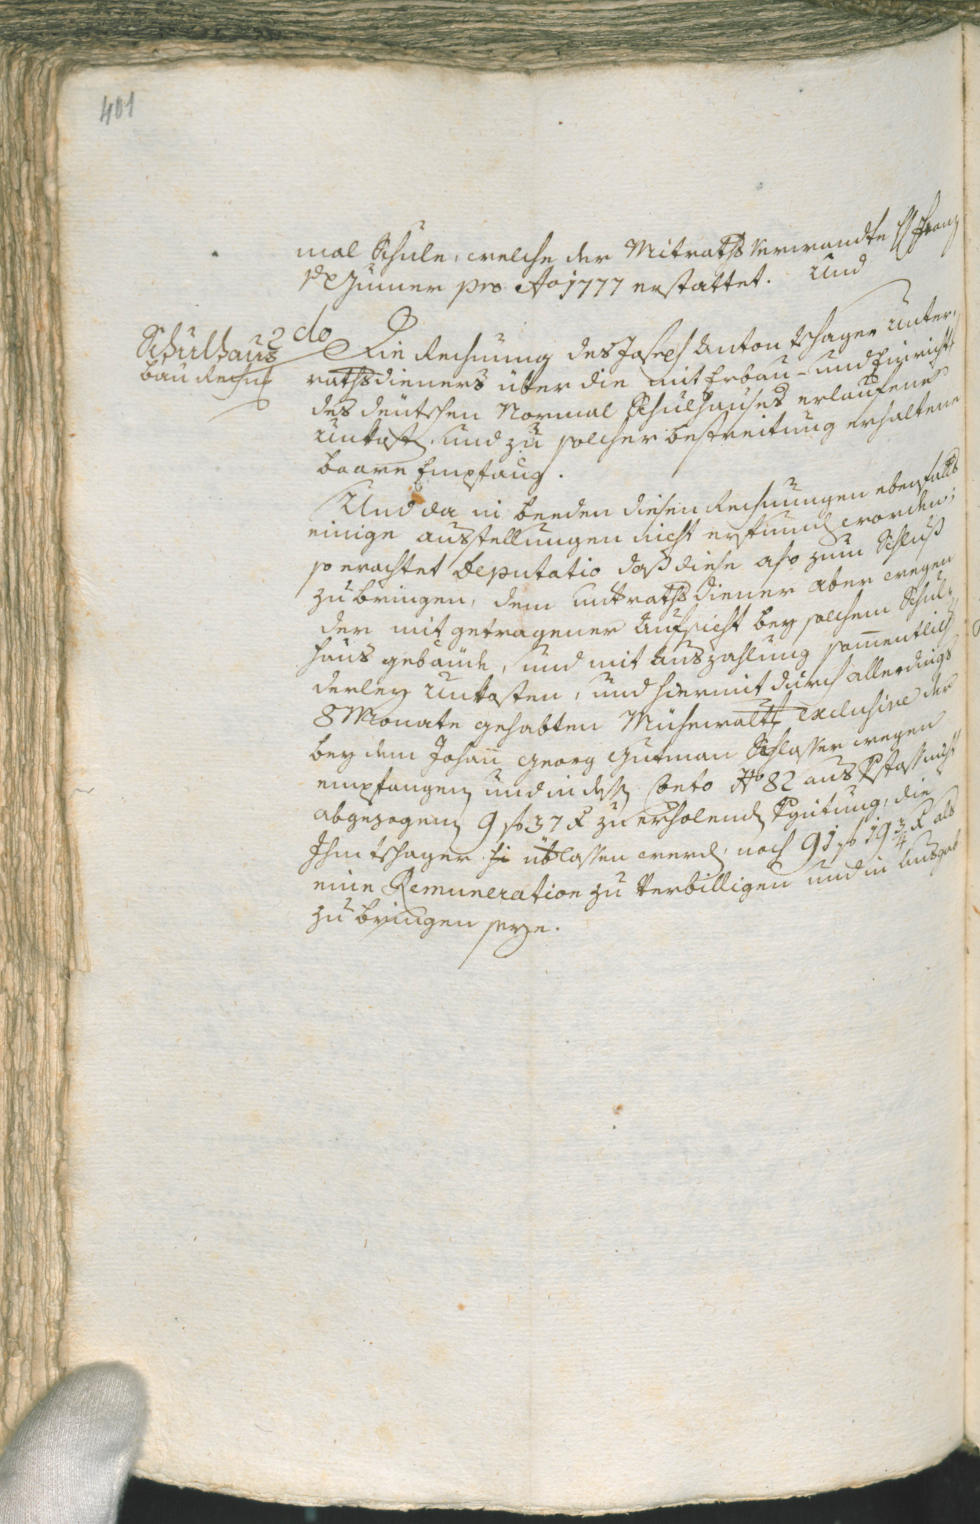 401
mal Schule, welche der Mitraths Verwandte H Franz
v Gumer pro Ao 1777 erstattet. Und
Schulhaus
bau Rechng
2do Die Rechnung des Joseph Anton tschager Unter-
rathsdieners über die mit Erbau- und Einricht
des deütschen Normal Schulhauses erlaufene
Unkosten und zu solcher bestreitung erhaltene
baare Empfang.
Und da in beeden diesen Rechnungen ebenfalls
einige ausstellungen nicht erfunden worden;
so erachtet Deputatio daß diese also zum Schluß
zu bringen, dem unterrathsdiener aber wegen
der mit getragener Aufsicht bey solchem Schul-
haus gebäude, und mit Auszahlung sam̅entlich
derley Unkosten, und hiermit durch allerdings
8 Monate gehabten Mühewaltg exclusive der
bey dem Johan̅ Georg Gutman Schlosser wegen
empfangen und in dessen Conto No 82 aus
abgezogenen 9 f 37 x zu erholenden die
Ihm tschager überlassen werden, noch 91 f 19 3/4 x als
eine Remuneration zu verbilligen und in Ausgab
zu bringen seye.